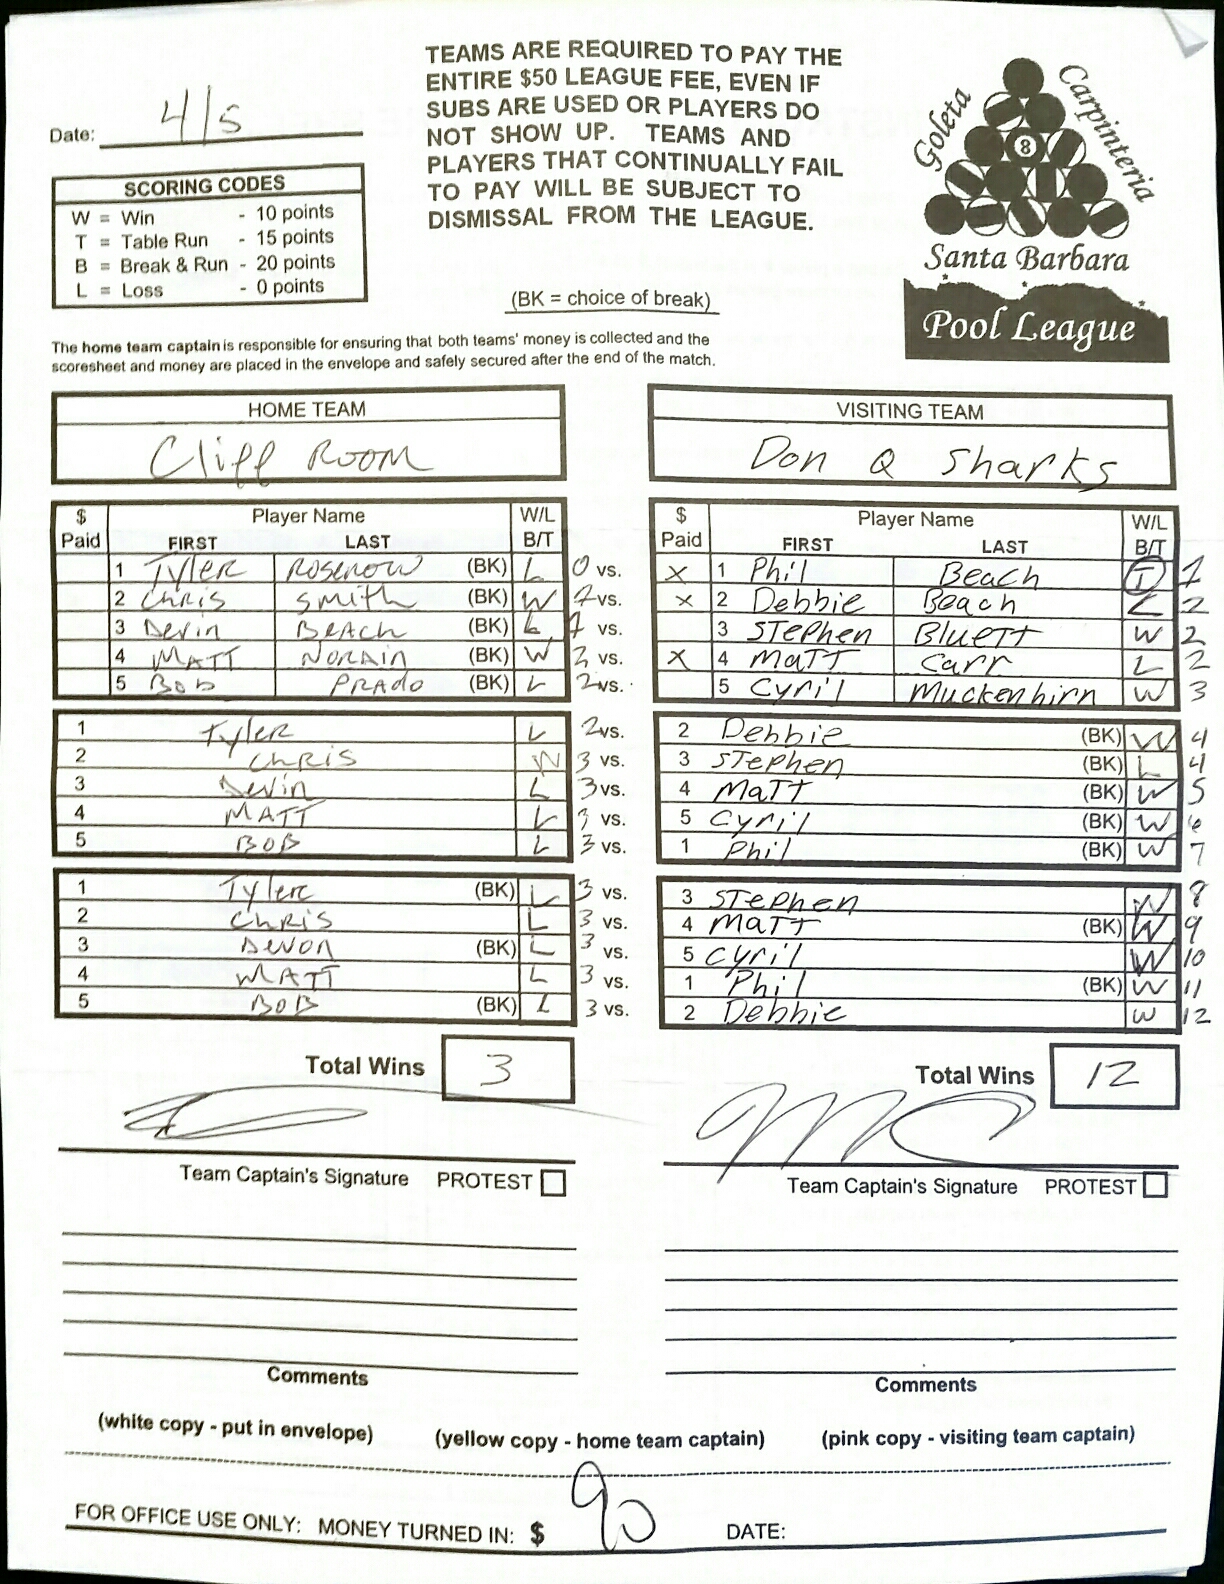 Date: 4/5
TEAMS ARE REQUIRED TO PAY THE
ENTIRE $50 LEAGUE FEE, EVEN IF
SUBS ARE USED OR PLAYERS DO
NOT SHOW UP. TEAMS AND
PLAYERS THAT CONTINUALLY FAIL
TO PAY WILL BE SUBJECT TO
DISMISSAL FROM THE LEAGUE.
Goleta
Carpinteria
8
Santa Barbara
Pool League
SCORING CODES
W = Win - 10 points
T = Table Run - 15 points
B = Break & Run - 20 points
L = Loss - 0 points
(BK = choice of break)
The home team captain is responsible for ensuring that both teams' money is collected and the
scoresheet and money are placed in the envelope and safely secured after the end of the match.
HOME TEAM
Cliff Room
VISITING TEAM
Don Q Sharks
$ Paid Player Name FIRST LAST W/L B/T
$ Paid Player Name FIRST LAST W/L B/T
1 Tyler Rosenow (BK) L 0 vs. X 1 Phil Beach T 1
2 Chris Smith (BK) W 1 vs. X 2 Debbie Beach L 2
3 Devin Beach (BK) L 1 vs. 3 Stephen Bluett W 2
4 Matt Norain (BK) W 2 vs. X 4 Matt Carr L 2
5 Bob Prado (BK) L 2 vs. 5 Cyril Muckenhirn W 3
1 Tyler L 2 vs. 2 Debbie (BK) W 4
2 Chris W 3 vs. 3 Stephen (BK) L 4
3 Devin L 3 vs. 4 Matt (BK) W 5
4 Matt L 3 vs. 5 Cyril (BK) W 6
5 Bob L 3 vs. 1 Phil (BK) W 7
1 Tyler (BK) L 3 vs. 3 Stephen W 8
2 Chris L 3 vs. 4 Matt (BK) W 9
3 Devon (BK) L 3 vs. 5 Cyril W 10
4 Matt L 3 vs. 1 Phil (BK) W 11
5 Bob (BK) L 3 vs. 2 Debbie W 12
Total Wins 3
Total Wins 12
Team Captain's Signature PROTEST
Team Captain's Signature PROTEST
Comments
Comments
(white copy - put in envelope) (yellow copy - home team captain) (pink copy - visiting team captain)
FOR OFFICE USE ONLY: MONEY TURNED IN: $ 90 DATE: